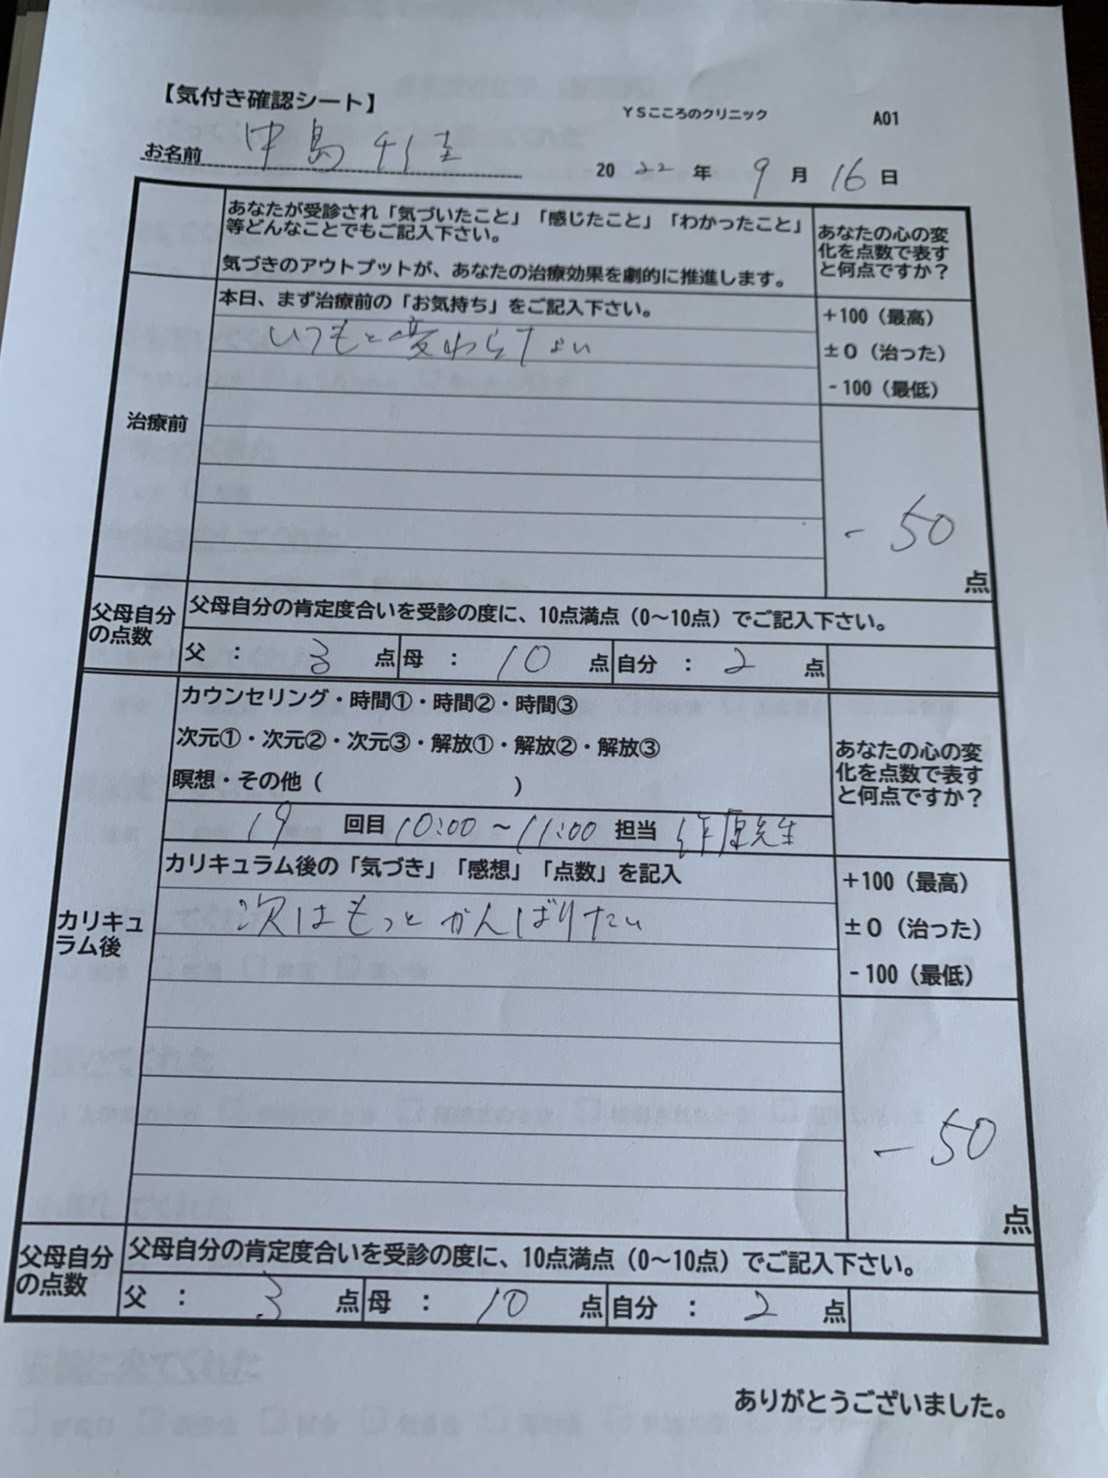 【気付き確認シート】 YSこころのクリニック A01
お名前 中島 2022年 9月 16日
あなたが受診され「気づいたこと」「感じたこと」「わかったこと」
等どんなことでもご記入下さい。
気づきのアウトプットが、あなたの治療効果を劇的に推進します。
あなたの心の変
化を点数で表す
と何点ですか？
治療前
本日、まず治療前の「お気持ち」をご記入下さい。
いつもと変わらない
+100（最高）
±0（治った）
-100（最低）
-50
点
父母自分
の点数
父母自分の肯定度合いを受診の度に、10点満点（0～10点）でご記入下さい。
父 ： 3 点 母 ： 10 点 自分 ： 2 点
カリキュ
ラム後
カウンセリング・時間①・時間②・時間③
次元①・次元②・次元③・解放①・解放②・解放③
瞑想・その他（ ）
19 回目 10:00～11:00 担当 原先生
あなたの心の変
化を点数で表す
と何点ですか？
カリキュラム後の「気づき」「感想」「点数」を記入
次はもっとがんばりたい
+100（最高）
±0（治った）
-100（最低）
-50
点
父母自分
の点数
父母自分の肯定度合いを受診の度に、10点満点（0～10点）でご記入下さい。
父 ： 3 点 母 ： 10 点 自分 ： 2 点
ありがとうございました。